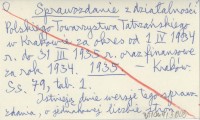 Sprawozdanie z działalności
Polskiego Towarzystwa Tatrzańskiego
w Krakowie za okres od 1 IV 1934
r. do 31 III 1935 r. oraz finansowe
za rok 1934. 1935 Kraków
Ss. 79, tab. 1.
Istnieją dwie wersje tego sprawo
zdania, o jednakowej liczbie stron